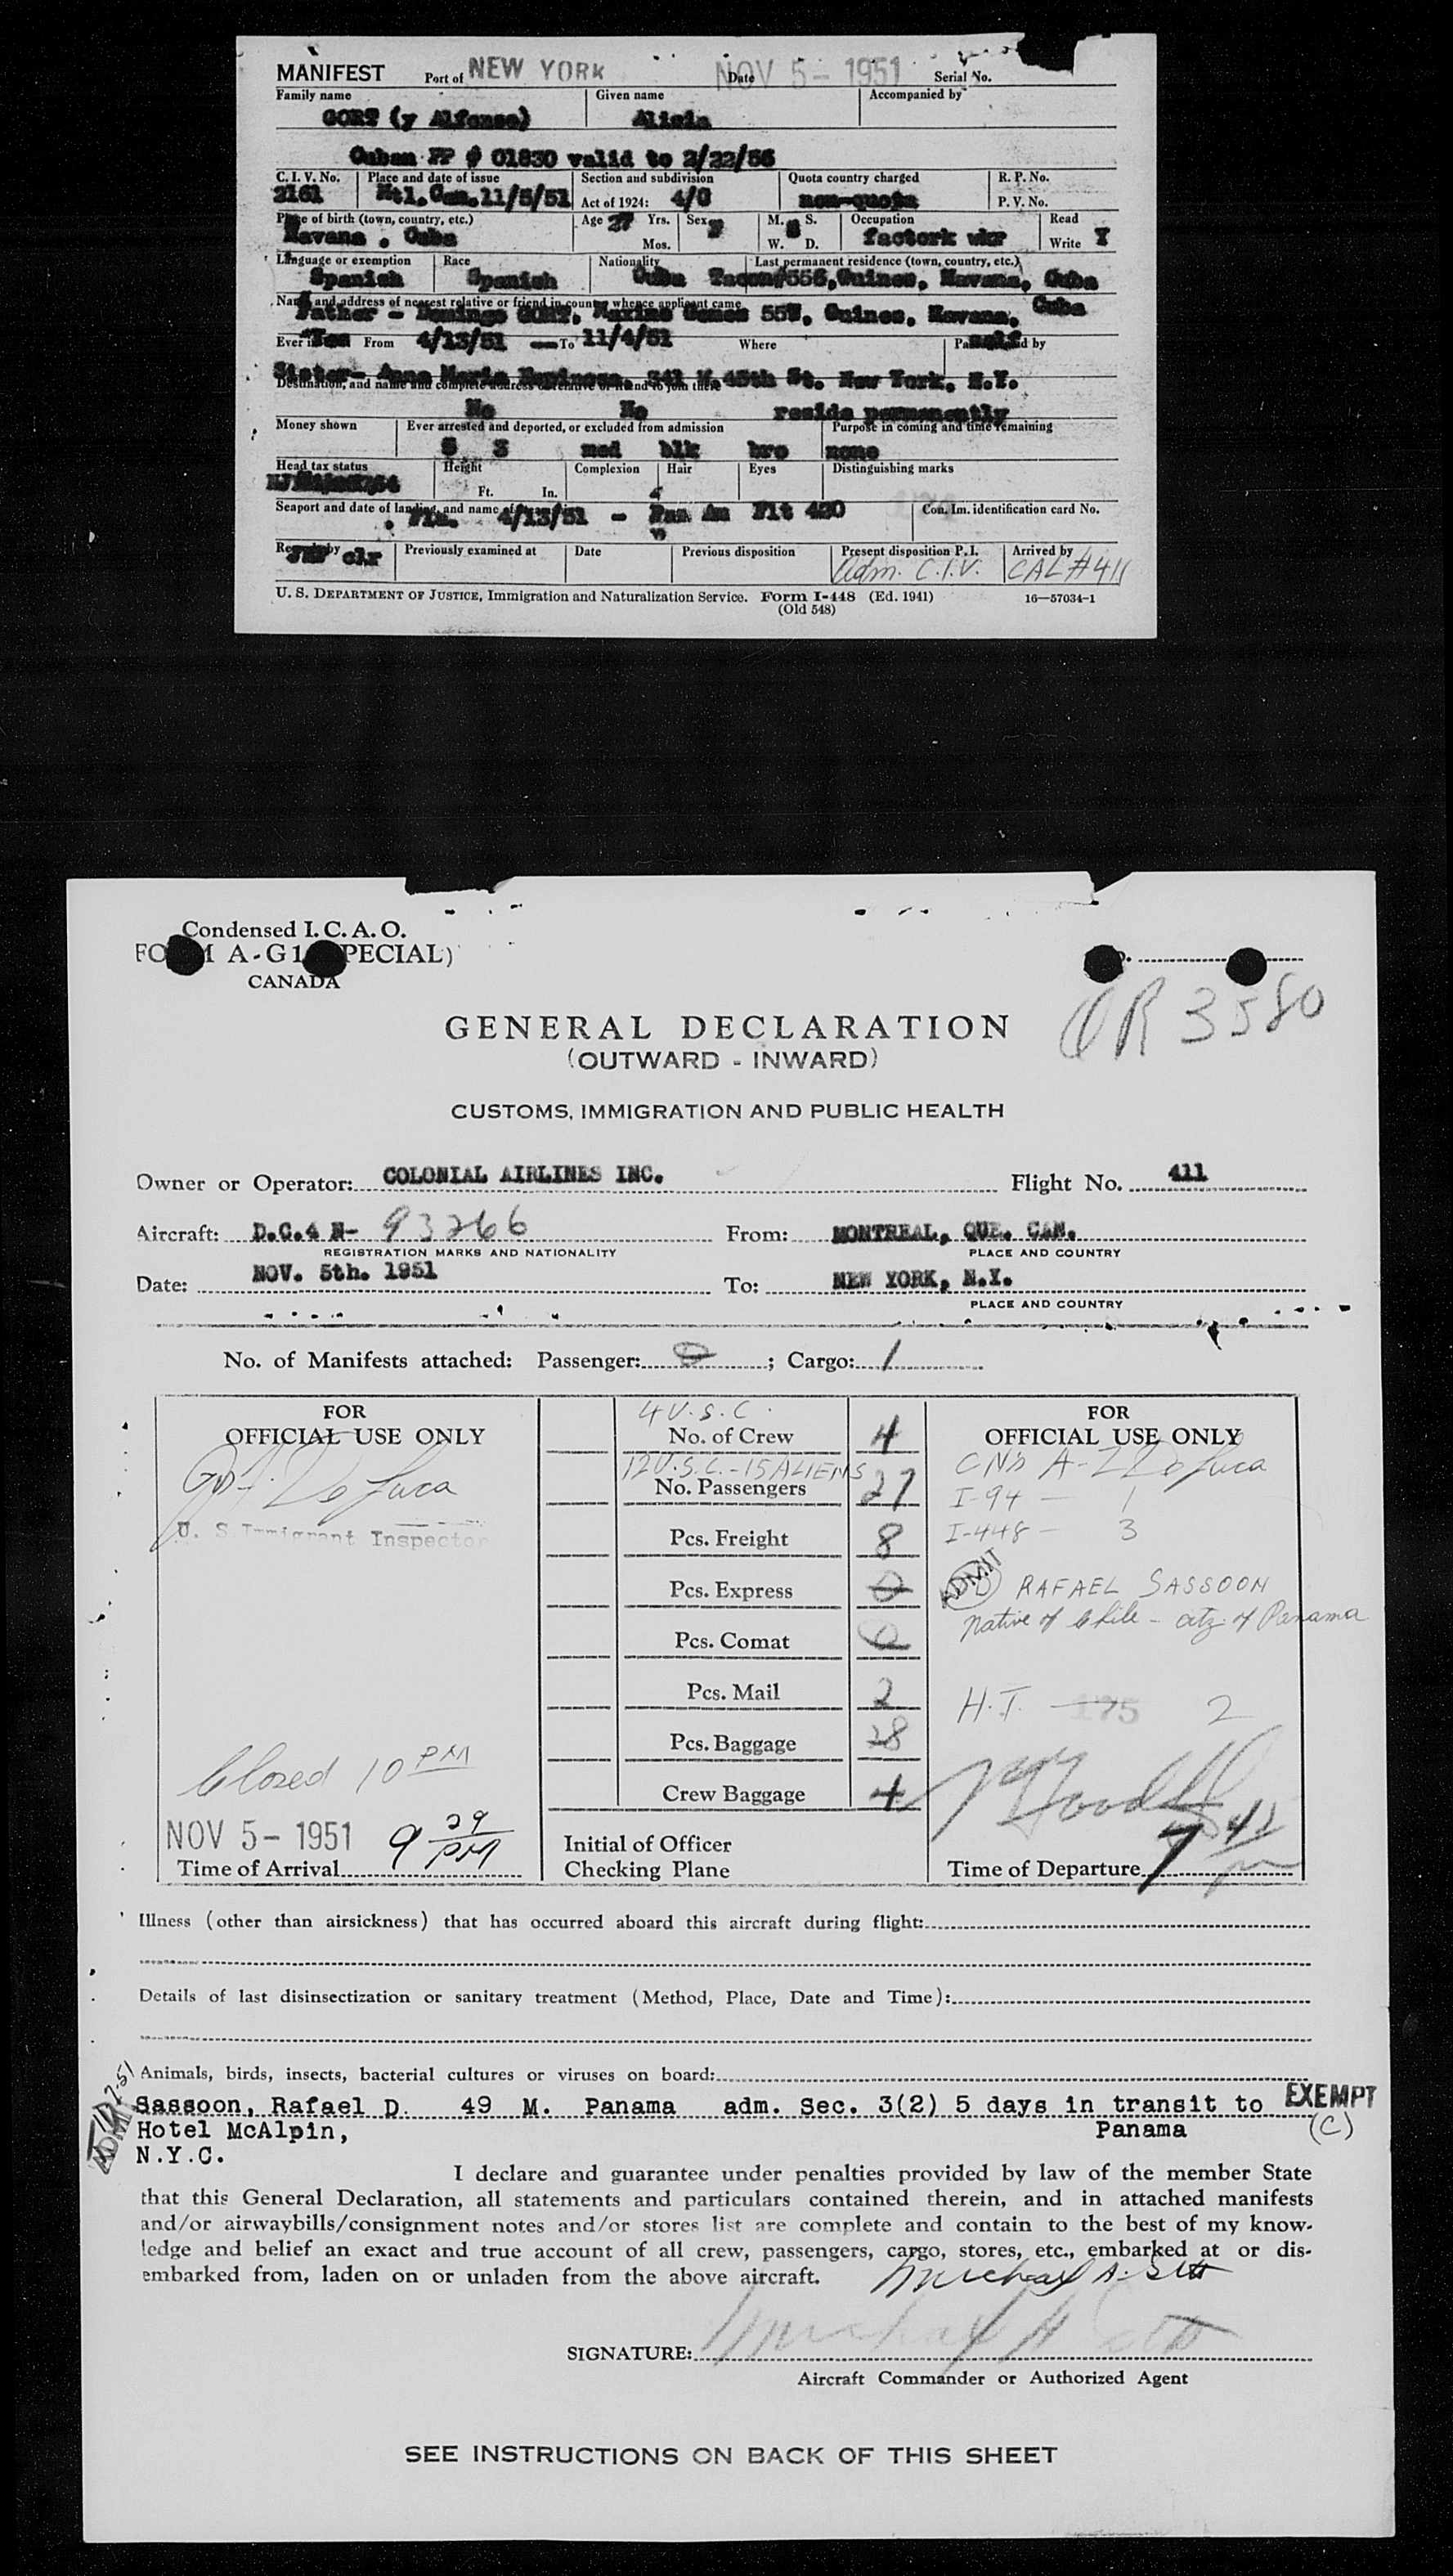 MANIFEST Port of NEW YORK Date NOV 5 - 1951 Serial No.
Family name Given name Accompanied by
GORT (y Alfonso) Alicia
Cuban PP # 01830 valid to 2/22/56
C. I. V. No. Place and date of issue Section and subdivision Quota country charged R. P. No.
2161 Mtl.Can.11/5/51 Act of 1924: 4/C non-quota P. V. No.
Place of birth (town, country, etc.) Age 27 Yrs. Sex F M. S. Occupation Read
Havana . Cuba Mos. W. S D. factork wkr Write Y
Language or exemption Race Nationality Last permanent residence (town, country, etc.)
Spanish Spanish Cuba Tacon#556,Guines, Havana, Cuba
Name and address of nearest relative or friend in country whence applicant came
Father - Domingo GORT, Maximo Gomez 55W, Guines, Havana, Cuba
Ever in Yes From 4/13/51 To 11/4/51 Where Passage paid by self
Sister- Anna Maria Espinosa, 341 W.45th St. New York, N.Y.
Destination, and name and complete address of relative or friend to join there
No No reside permanently
Money shown Ever arrested and deported, or excluded from admission Purpose in coming and time remaining
5 3 med blk bro none
Head tax status Height Complexion Hair Eyes Distinguishing marks
Ft. In.
Seaport and date of landing, and name of
Fla. 4/13/51 - Pan Am Flt 420 Con. Im. identification card No.
clr Previously examined at Date Previous disposition Present disposition P. I. Arrived by
Adm. C.I.V. CAL #411
U. S. DEPARTMENT OF JUSTICE, Immigration and Naturalization Service. Form I-448 (Ed. 1941) 16—57034-1
(Old 548)
Condensed I. C. A. O.
FORM A-G1 (SPECIAL)
CANADA
OR 3580
GENERAL DECLARATION
(OUTWARD - INWARD)
CUSTOMS, IMMIGRATION AND PUBLIC HEALTH
Owner or Operator: COLONIAL AIRLINES INC. Flight No. 411
Aircraft: D.C.4 N- 93266 From: MONTREAL, QUE. CAN.
REGISTRATION MARKS AND NATIONALITY PLACE AND COUNTRY
Date: NOV. 5th. 1951 To: NEW YORK, N.Y.
PLACE AND COUNTRY
No. of Manifests attached: Passenger: 0; Cargo: 1
FOR 4 U.S.C. FOR
OFFICIAL USE ONLY No. of Crew 4 OFFICIAL USE ONLY
De Luca 12 U.S.C. - 15 ALIENS CND A-Z De Luca
No. Passengers 27 I-94 — 1
U. S Immigrant Inspector Pcs. Freight 8 I-448 — 3
Pcs. Express 0 ADMIT RAFAEL SASSOON
native of Chile - ctz. of Panama
Pcs. Comat 0
Pcs. Mail 2 H.T. — 175 2
Pcs. Baggage 28
Closed 10 PM
Crew Baggage 4
NOV 5 - 1951 9 29 PM Initial of Officer 7 41
Time of Arrival Checking Plane Time of Departure
Illness (other than airsickness) that has occurred aboard this aircraft during flight:
Details of last disinsectization or sanitary treatment (Method, Place, Date and Time):
Animals, birds, insects, bacterial cultures or viruses on board:
Sassoon, Rafael D. 49 M. Panama adm. Sec. 3(2) 5 days in transit to EXEMPT
Hotel McAlpin, Panama (C)
N.Y.C.
I declare and guarantee under penalties provided by law of the member State
that this General Declaration, all statements and particulars contained therein, and in attached manifests
and/or airwaybills/consignment notes and/or stores list are complete and contain to the best of my know-
ledge and belief an exact and true account of all crew, passengers, cargo, stores, etc., embarked at or dis-
embarked from, laden on or unladen from the above aircraft.
Michael A.
SIGNATURE: Michael A
Aircraft Commander or Authorized Agent
SEE INSTRUCTIONS ON BACK OF THIS SHEET